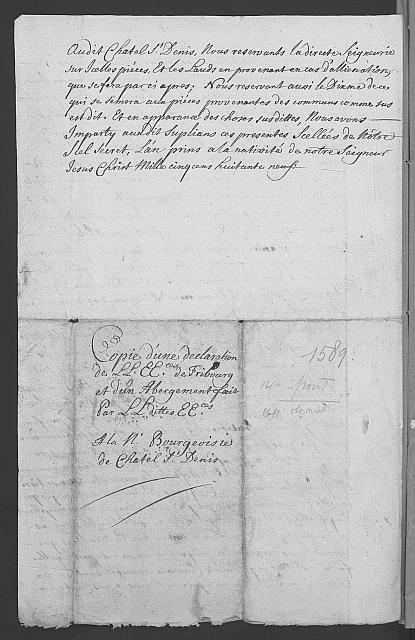 Audit Chatel St. Denis, Nous reservants la directe Seigneurie
sur Icelles pièces, Et les Lauds en provenant en cas d'allienation,
que se fera par ci après; Nous reservant aussi le Diæme de ce
qui se semera aux pièces provenantes des communs comme sus
est dit. Et en apparance des choses susdittes, Nous avons
Imparty auxdit suplians ces presentes Scellées de Nôtre
Scel Secret, L'an prins a la nativité de notre Seigneur
Jesus Christ Mille cinq cens huitante neuf.
Copie d'une declaration
de LL. EE.ces de Fribourg
et d'un Abergement fait
Par LL dittes EE.ces
A la N. Bourgeoisie
de Chatel St. Denis
1589.